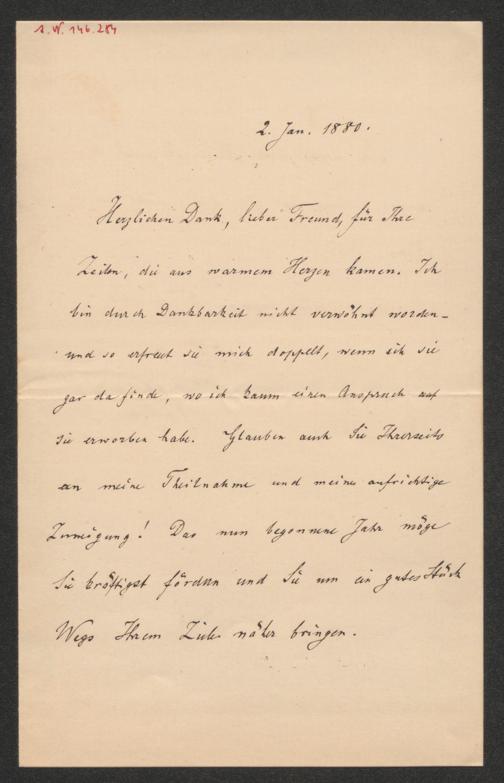 A.W. 146.284
2. Jan. 1880.
Herzlichen Dank, lieber Freund, für Ihre
Zeilen, die aus warmem Herzen kamen. Ich
bin durch Dankbarkeit nicht verwöhnt worden –
und so erfreut sie mich doppelt, wenn ich sie
gar da finde, wo ich kaum einen Anspruch auf
sie erworben habe. Glauben auch Sie Ihrerseits
an meine Theilnahme und meine aufrichtige
Zuneigung! Das nun begonnene Jahr möge
Sie kräftigst fördern und Sie um ein gutes Stück
Wegs Ihrem Ziele näher bringen.